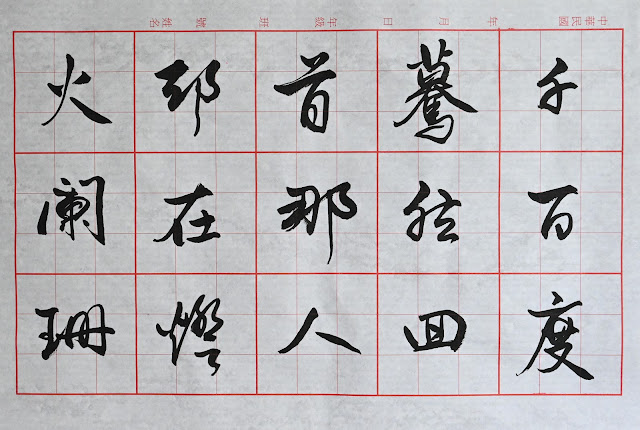 中華民國 年 月 日 年級 班 號 姓名
千百度
驀然回
首那人
卻在燈
火闌珊